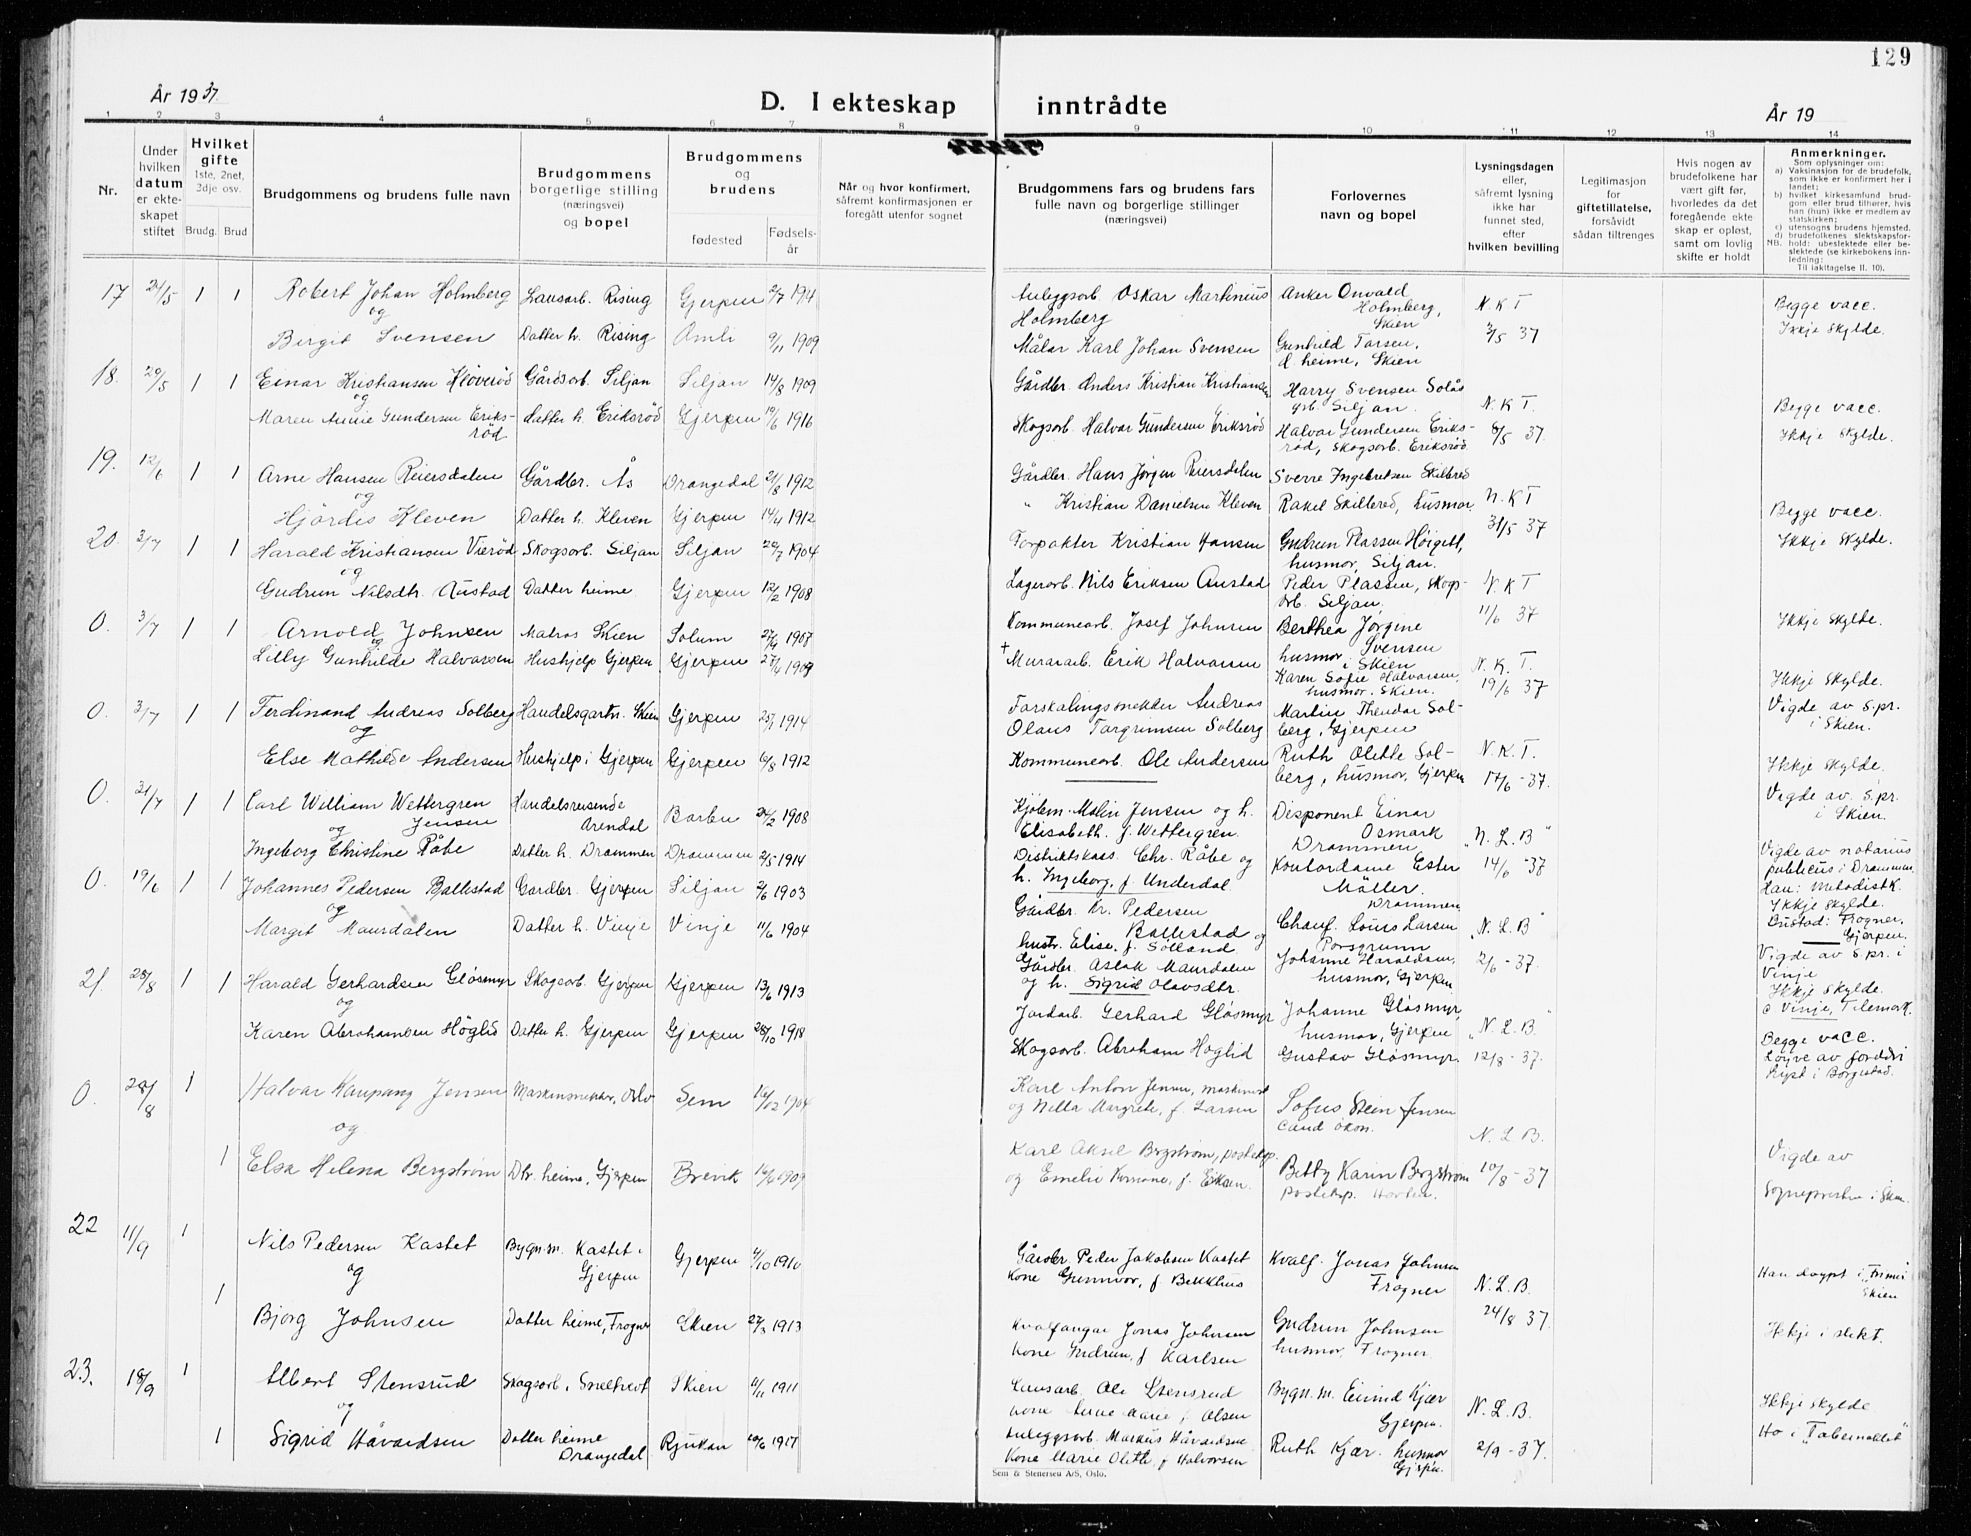 129
År 1937.
D. I ekteskap inntrådte
År 19
1 2 3 4 5 6 7 8 9 10 11 12 13 14
Nr.
Under hvilken datum er ekteskapet stiftet
Hvilket gifte
1ste, 2net, 3dje osv.
Brudg. Brud
Brudgommens og brudens fulle navn
Brudgommens borgerlige stilling (næringsvei) og bopel
Brudgommens og brudens
fødested
Fødselsår
Når og hvor konfirmert, såfremt konfirmasjonen er foregått utenfor sognet
Brudgommens fars og brudens fars fulle navn og borgerlige stillinger (næringsvei)
Forlovernes navn og bopel
Lysningsdagen eller, såfremt lysning ikke har funnet sted, efter hvilken bevilling
Legitimasjon for giftetillatelse, forsåvidt sådan tiltrenges
Hvis nogen av brudefolkene har vært gift før, hvorledes da det foregående ekteskap er opløst, samt om lovlig skifte er holdt
Anmerkninger.
Som oplysninger om:
a) Vaksinasjon for de brudefolk, som ikke er konfirmert her i landet;
b) hvilket kirkesamfund brudgom eller brud tilhører, hvis han (hun) ikke er medlem av statskirken;
c) utensogns brudens hjemsted.
d) brudefolkenes slektskapsforhold: ubeslektede eller beslektede (se kirkebokens innledning:
NB.
Til iakttagelse II. 10).
17 21/5 1 1 Robert Johan Holmberg Lausarb. Rising Gjerpen 2/7 1914 Anleggsarb. Oskar Martinius Holmberg Anker Onvald Holmberg, Skien N. K. T Begge vacc.
og
Birgit Svensen Datter h. Rising Åmli 9/11 1909 Målar Karl Johan Svensen Gunhild Tarsen, d. heime, Skien 3/5 37 Ikkje skylde.
18. 29/5 1 1 Einar Kristiansen Kløverød Gårdsarb. Siljan Siljan 14/8 1909 Gårdbr. Anders Kristian Kristiansen Harry Svensen Solås grb. Siljan. N. K. T. Begge vacc.
og
Maren Annie Gundersen Eriksrød Datter h. Eriksrød Gjerpen 19/6 1916 Skogsarb. Halvar Gundersen Eriksrød Halvar Gundersen Eriksrød, Skogsarb. Eriksrød. 8/5 37. Ikkje skylde.
19. 12/6 1 1 Arne Hansen Reiersdalen Gårdbr. Ås Drangedal 21/8 1912 Gårdbr. Hans Jørgen Reiersdalen Sverre Ingebretsen Skilbred N. K T Begge vacc.
og
Hjördis Kleven Datter h. Kleven Gjerpen 14/4 1912 " Kristian Danielsen Kleven Rakel Skilbred, husmor, 31/5 37 Ikkje skylde.
20. 3/7 1 1 Harald Kristiansen Vierød Skogsarb. Siljan Siljan 20/7 1904 Forpakter Kristian Hansen Gudrun Plassen Høigett, husmor, Siljan. N. K T
og
Gudrun Nilsdtr. Austad Datter heime Gjerpen 12/2 1908 Lagerarb. Nils Eriksen Austad Peder Plassen, Skogsarb. Siljan, 11/6 37 Ikkje skylde.
0. 3/7 1 1 Arnold Johnsen Matros Skien Solum 27/4 1907 Kommunearb. Josef Johnsen Berthea Jørgine Svensen husmor i Skien N. K. T. Ikkje skylde.
og
Lilly Gunhilde Halvarsen Hushjelp Gjerpen Gjerpen 27/4 1909 † Murararb. Erik Halvarsen Karen Sofie Halvarsen, husmor. Skien. 19/6 37 Vigde av s.pr. i Skien.
0. 3/7 1 1 Ferdinand Andreas Solberg Handelsgartn. Skien Gjerpen 25/1 1914 Forskalingsmekler Andreas Olaus Torgrimsen Solberg Martin Theodor Solberg, Gjerpen N. K. T. Ikkje skylde.
og
Else Mathilde Andersen Hushjelp i Gjerpen Gjerpen 6/8 1912 Kommunearb. Ole Andersen Ruth Olette Solberg, husmor, Gjerpen 17/6 -37. Vigde av. s.pr. i Skien.
0. 21/7 1 1 Carl William Wettergren Jensen Handelsreisende Arendal Barbu 24/2 1908 Kjøbm. Malin Jensen og h. Elisabeth. f. Wettergren. Disponent Einar Osmark Drammen "N. L. B" Vigde av notarius publicus i Drammen.
og
Ingeborg Christine Råbe Datter h. Drammen Drammen 2/5 1914 Distriktskass. Chr. Råbe og h. Ingeborg, f. Underdal. Kontordame Ester Møller. Drammen 14/6 -37 Han: Metodistk. Ikkje skylde. Bustad: Frogner, Gjerpen.
0. 19/6 1 1 Johannes Pedersen Ballestad Gardbr. Gjerpen Siljan 2/6 1903 Gårdbr. Kr. Pedersen Ballestad og hustr. Elise, f. Sølland Chauf. Louis Larsen Porsgrunn "N. L. B" Vigde av s.pr. i Vinje
og
Margit Maurdalen Datter h. Vinje Vinje 11/6 1904 Gårdbr. Aslak Maurdalen og h. Sigrid Olavsdtr. Johanne Haraldsen, husmor, Gjerpen 2/6 -37. Ikkje skylde. c Vinje, Telemark.
21. 28/8 1 1 Harald Gerhardsen Gløsmyr Skogsarb. Gjerpen Gjerpen 13/6 1913 Jordarb. Gerhard Gløsmyr Johanne Gløsmyr, husmor, Gjerpen "N. L. B. Begge vacc.
og
Karen Abrahamsen Høglid Datter h. Gjerpen Gjerpen 28/10 1918 Skogsarb. Abraham Høglid Gustav Gløsmyr. 12/8 -37. Løyve av foreldri lyst i Borgestad.
0. 28/8 1 Halvar Kaupang Jensen Maskinmeister, Oslo Sem 16/02 1904 Karl Anton Jensen, maskinist og Nella Margrete, f. Larsen Sofus Stein Jensen Cand økon. N. L B.
og
1 Elsa Helena Bergstrøm Dtr. heime, Gjerpen Brevik 16/6 1909 Karl Aksel Bergstrøm, postekp. og Emelie Romone, f. Eiksen. Betty Karin Bergstrøm postekp. Horten. 10/8 -37 Vigde av Sognepresten i Skien.
22 11/9 1 Nils Pedersen Kastet Bygn.m. Kastet i Gjerpen Gjerpen 4/10 1910 Gårdbr. Peder Jakobsen Kastet kone Gunnvor, f. Bekkhus Kvalf. Jonas Johnsen Frogner N. L. B. Han døypt i "Frimis" Skien
og
1 Bjørg Johnsen Datter heime, Frogner Skien 27/3 1913 Kvalfangar Jonas Johnsen kone Gudrun, f. Karlsen Gudrun Johnsen husmor, Frogner. 24/8 37. Ikkje i slekt.
23. 18/9 1 Albert Stensrud Skogsarb. Sneltvedt Skien 11/11 1911 Lausarb. Ole Stensrud kone Anne Marie f. Olsen Bygn.m. Eivind Kjær Gjerpen. N. L. B. Ikkje skylde
og
1 Sigrid Håvardsen Datter heime Drangedal Rjukan 10/6 1917 Anleggsarb. Markus Håvardsen kone Marie Olette, f Halvorsen Ruth Kjær. husmor Gjerpen. 2/9 -37. Ho i "Tabernaklet"
Sem & Stenersen A/S, Oslo.